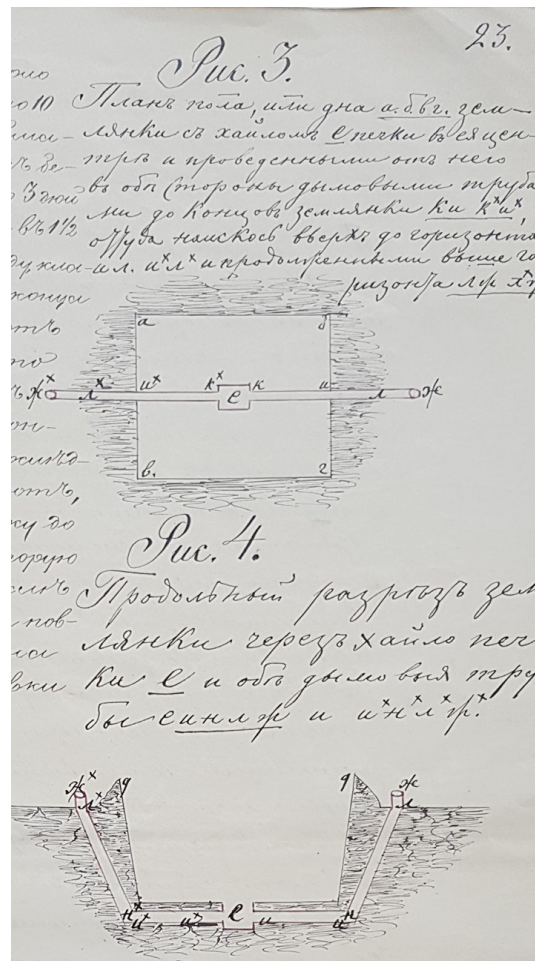 23.
Рис. 3.
Планъ пола, или дна а.б.в.г. зем-
лянки съ хайломъ е печки въ ея цен-
трѣ и проведенными отъ него
въ обѣ стороны дымовыми труба
ми до концовъ землянки ки кˣиˣ,
оттуда наискось вверхъ до горизонта
ил. иˣлˣ и продолженными выше го
ризонта лж
а
жˣ лˣ иˣ кˣ е к и л ж
в. г
Рис. 4.
Продольный разрѣзъ зем
лянки черезъ хайло печ
ки е и обѣ дымовыя тру
бы еинлж и иˣнˣлˣжˣ.
жˣ лˣ q q ж л
нˣ иˣ иˣ е и и н
10
3 дюй
въ 1½
конца
отъ
отъ,
ку до
пов-